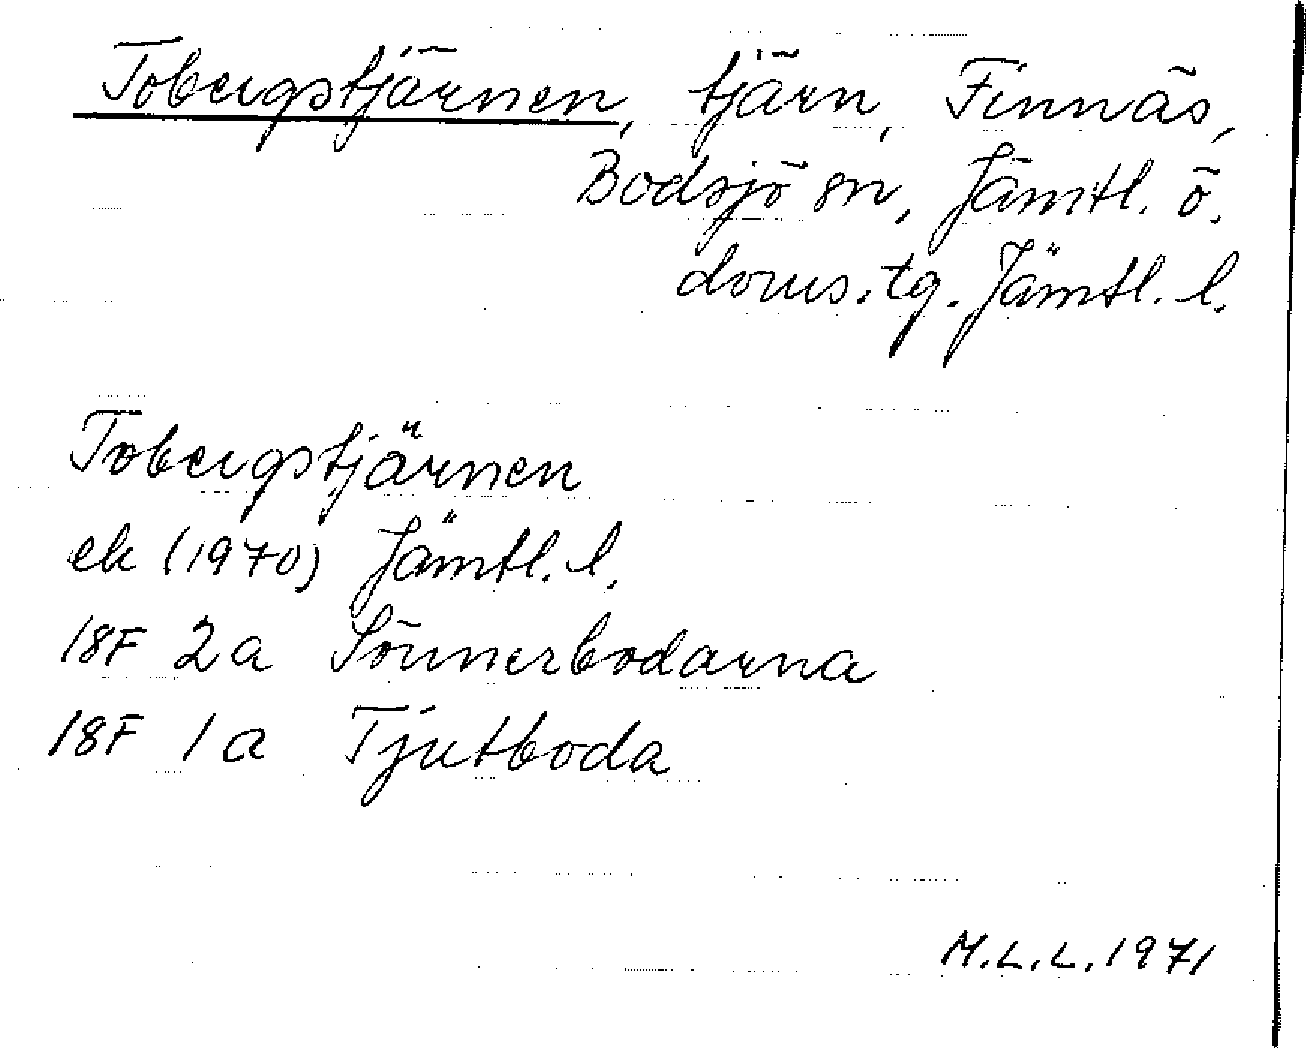 Tobergstjärnen, tjärn, Finnäs,
Bodsjö sn, Jämtl. ö.
doms.tg. Jämtl. l.
Tobergstjärnen
ek (1970) Jämtl. l.
18F 2a Sönnerbodarna
18F 1a Tjutboda
M.L.L. 1971